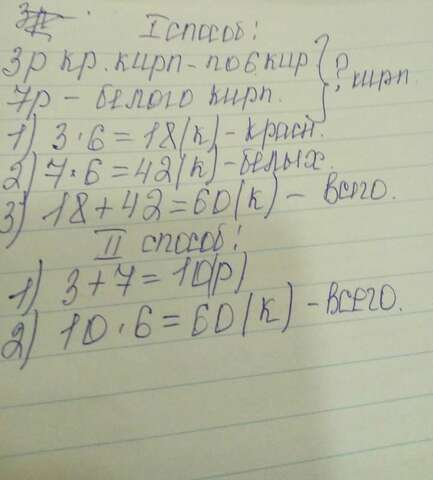 I способ:
3р кр. кирп - по 6 кир } ? кирп.
7р - белого кирп.
1) 3·6=18(к) - красн.
2) 7·6=42(к) - белых.
3) 18+42=60(к) - всего.
II способ:
1) 3+7=10(р)
2) 10·6=60(к) - всего.